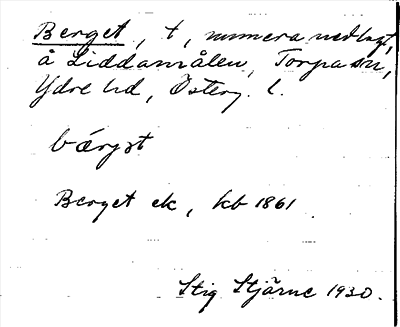 Berget, t, numera nedlagt,
å Liddamålen, Torpa sn,
Ydre hd, Österg. l.
bæ´rjət
Berget ek, kb 1861
Stig Stjärne 1930.